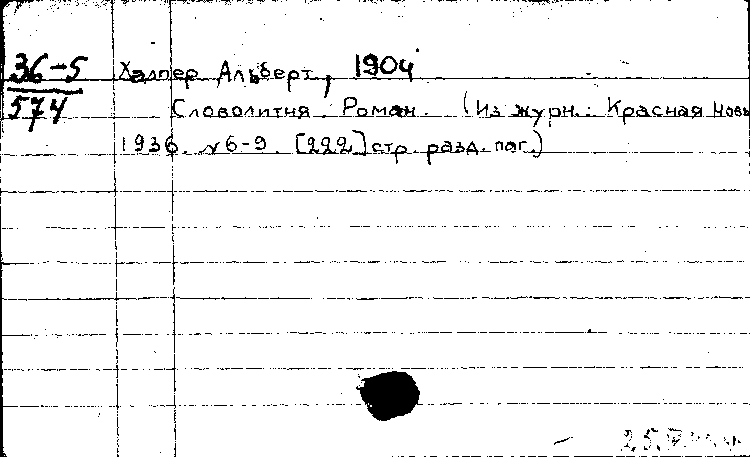 36-5
574
Халпер Альберт, 1904
Словолитня. Роман. (Из журн.: Красная Новь
1936. №6-9. [222] стр. разд. паг.)